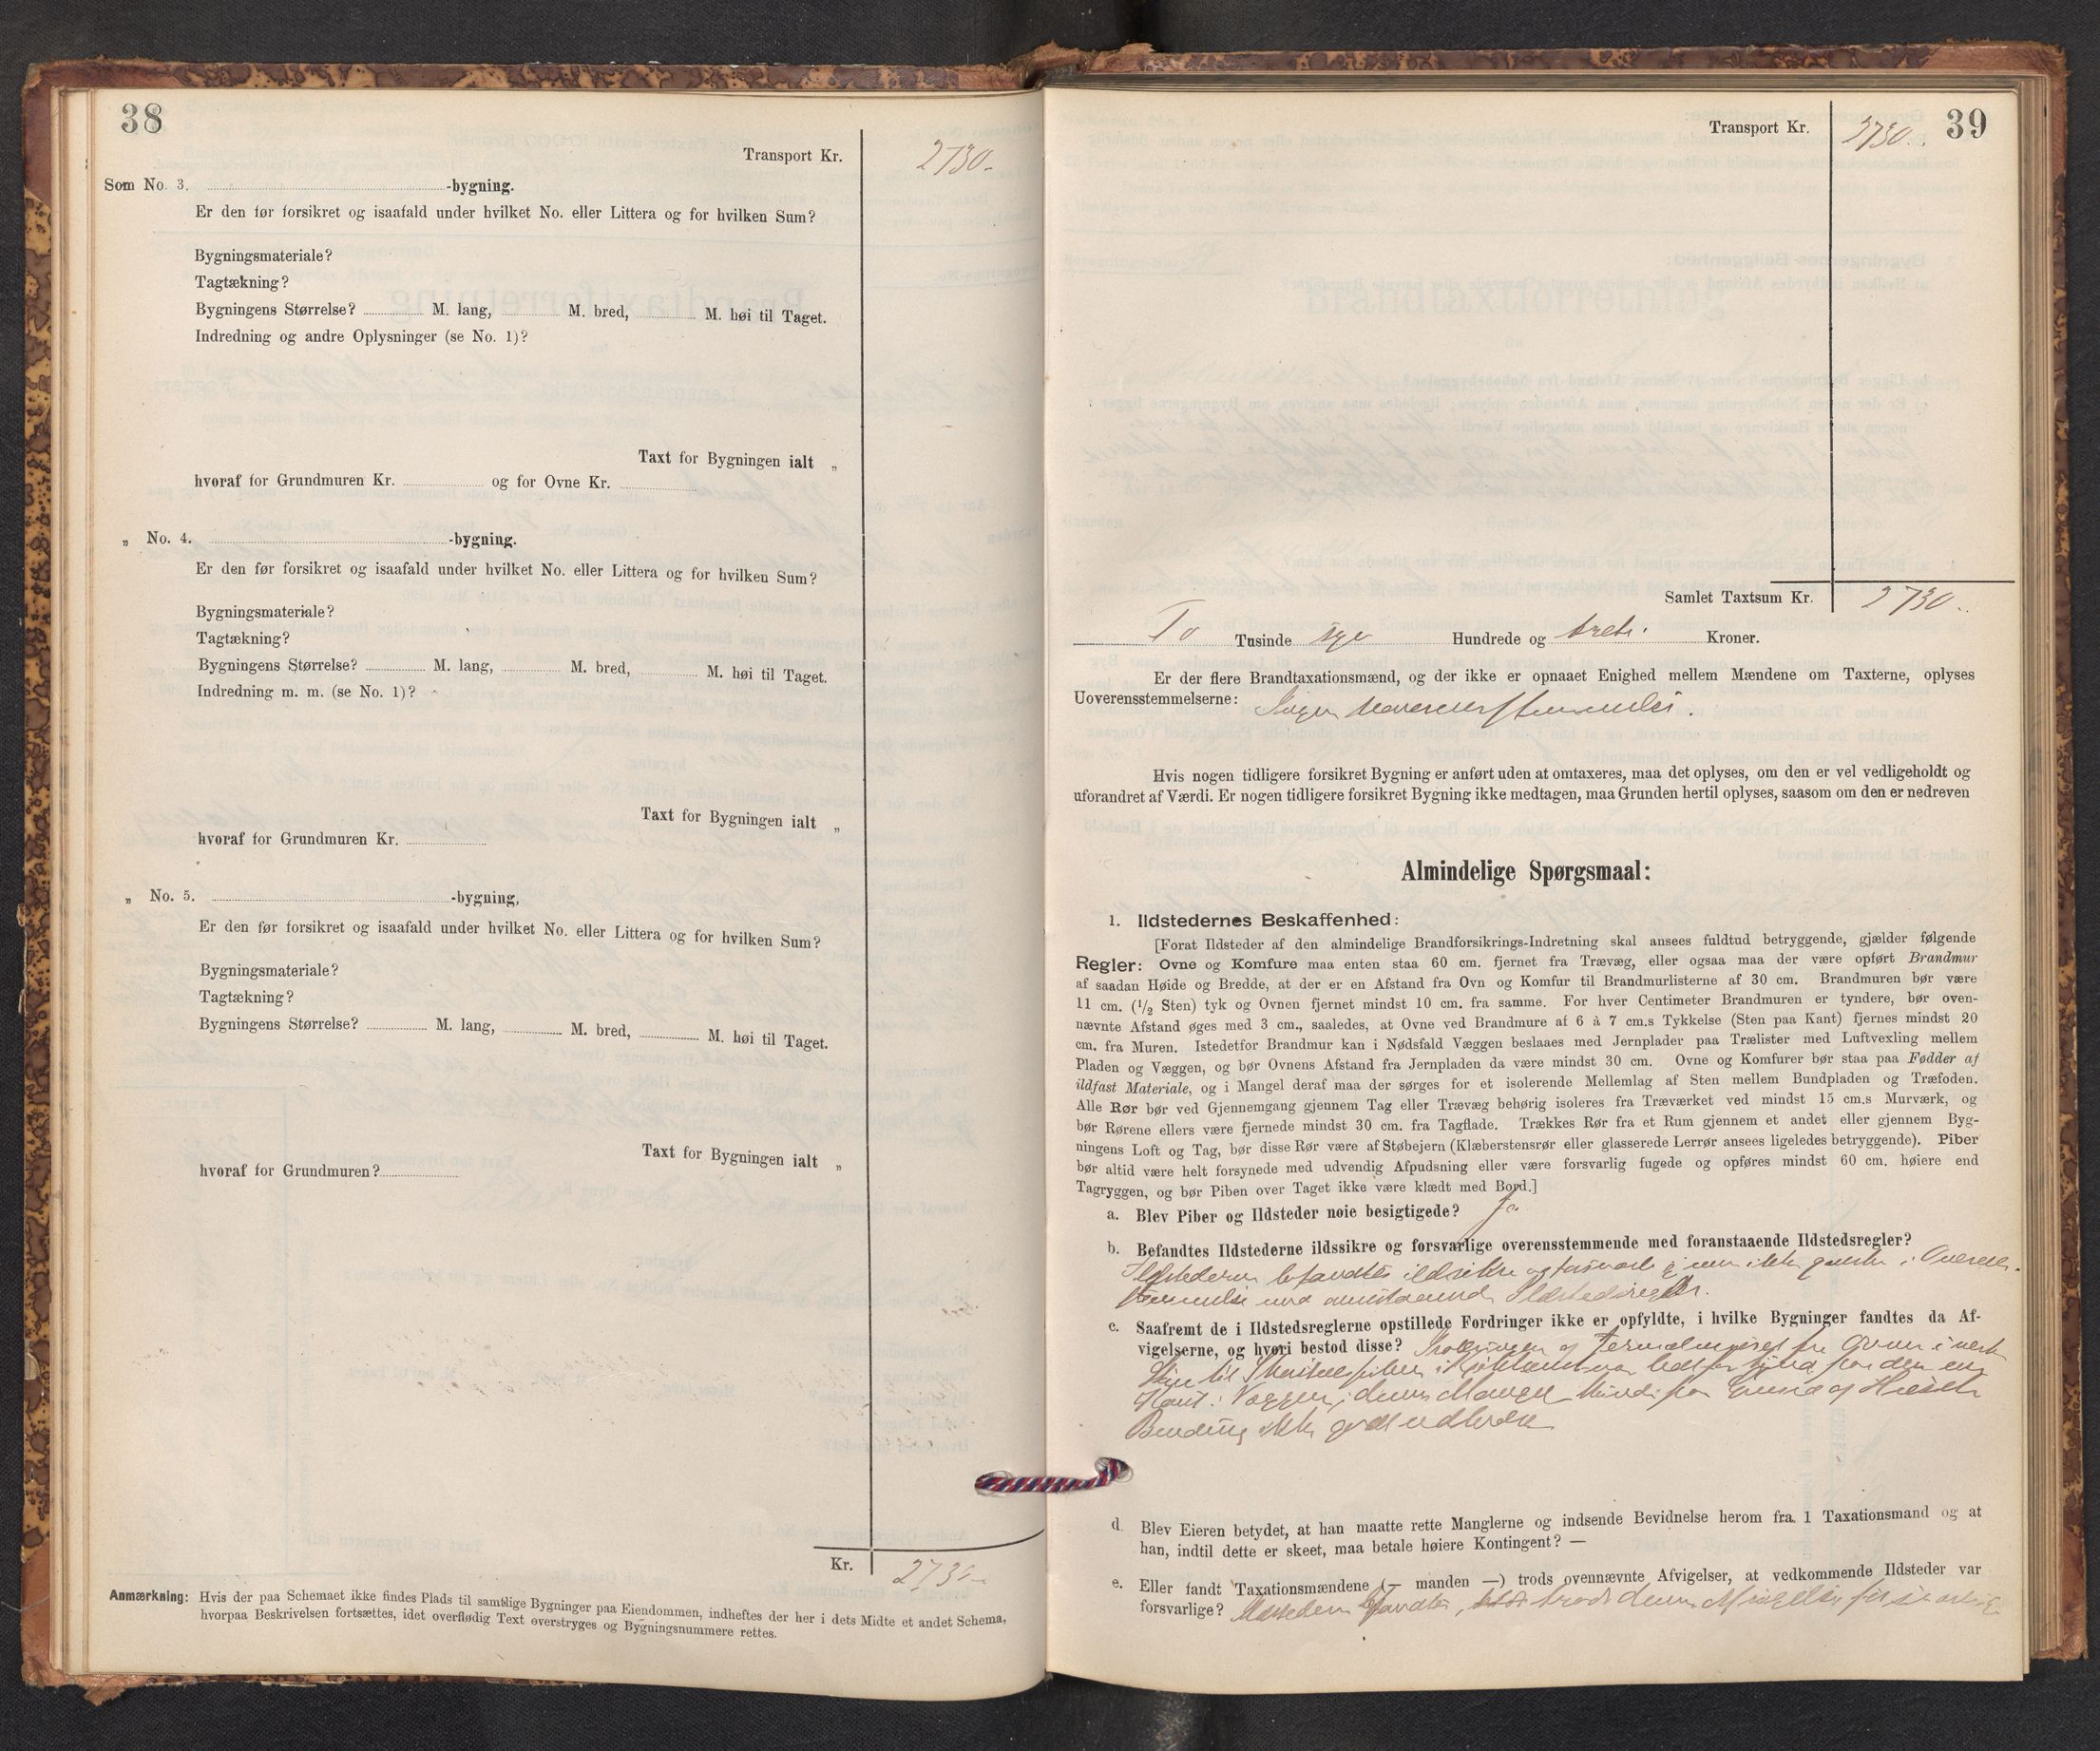 38
Transport Kr. 2730.
Som No. 3. -bygning.
Er den før forsikret og isaafald under hvilket No. eller Littera og for hvilken Sum?
Bygningsmateriale?
Tagtækning?
Bygningens Størrelse? M. lang, M. bred, M. høi til Taget.
Indredning og andre Oplysninger (se No. 1)?
Taxt for Bygningen ialt „
hvoraf for Grundmuren Kr. og for Ovne Kr.
„ No. 4. -bygning.
Er den før forsikret og isaafald under hvilket No. eller Littera og for hvilken Sum?
Bygningsmateriale?
Tagtækning?
Bygningens Størrelse? M. lang, M. bred, M. høi til Taget.
Indredning m. m. (se No. 1)?
Taxt for Bygningen ialt „
hvoraf for Grundmuren Kr.
„ No. 5. -bygning,
Er den før forsikret og isaafald under hvilket No. eller Littera og for hvilken Sum?
Bygningsmateriale?
Tagtækning?
Bygningens Størrelse? M. lang, M. bred, M. høi til Taget.
Taxt for Bygningen ialt „
hvoraf for Grundmuren?
Kr. 2730
Anmærkning: Hvis der paa Schemaet ikke findes Plads til samtlige Bygninger paa Eiendommen, indheftes der her i dets Midte et andet Schema,
hvorpaa Beskrivelsen fortsættes, idet overflødig Text overstryges og Bygningsnummere rettes.
39
Transport Kr. 2730.
Samlet Taxtsum Kr. 2730.
To Tusinde syv Hundrede og treti. Kroner.
Er der flere Brandtaxationsmænd, og der ikke er opnaaet Enighed mellem Mændene om Taxterne, oplyses
Uoverensstemmelserne: Ingen Uoverensstemmelse.
Hvis nogen tidligere forsikret Bygning er anført uden at omtaxeres, maa det oplyses, om den er vel vedligeholdt og
uforandret af Værdi. Er nogen tidligere forsikret Bygning ikke medtagen, maa Grunden hertil oplyses, saasom om den er nedreven
Almindelige Spørgsmaal:
1. Ildstedernes Beskaffenhed:
[Forat Ildsteder af den almindelige Brandforsikrings-Indretning skal ansees fuldtud betryggende, gjælder følgende
Regler: Ovne og Komfure maa enten staa 60 cm. fjernet fra Trævæg, eller ogsaa maa der være opført Brandmur
af saadan Høide og Bredde, at der er en Afstand fra Ovn og Komfur til Brandmurlisterne af 30 cm. Brandmuren bør være
11 cm. (1/2 Sten) tyk og Ovnen fjernet mindst 10 cm. fra samme. For hver Centimeter Brandmuren er tyndere, bør oven-
nævnte Afstand øges med 3 cm., saaledes, at Ovne ved Brandmure af 6 à 7 cm.s Tykkelse (Sten paa Kant) fjernes mindst 20
cm. fra Muren. Istedetfor Brandmur kan i Nødsfald Væggen beslaaes med Jernplader paa Trælister med Luftvexling mellem
Pladen og Væggen, og bør Ovnens Afstand fra Jernpladen da være mindst 30 cm. Ovne og Komfurer bør staa paa Fødder af
ildfast Materiale, og i Mangel deraf maa der sørges for et isolerende Mellemlag af Sten mellem Bundpladen og Træfoden.
Alle Rør bør ved Gjennemgang gjennem Tag eller Trævæg behørig isoleres fra Træværket ved mindst 15 cm.s Murværk, og
bør Rørene ellers være fjernede mindst 30 cm. fra Tagflade. Trækkes Rør fra et Rum gjennem et andet eller gjennem Byg-
ningens Loft og Tag, bør disse Rør være af Støbejern (Klæberstensrør eller glasserede Lerrør ansees ligeledes betryggende). Piber
bør altid være helt forsynede med udvendig Afpudsning eller være forsvarlig fugede og opføres mindst 60 cm. høiere end
Tagryggen, og bør Piben over Taget ikke være klædt med Bord.]
a. Blev Piber og Ildsteder nøie besigtigede? Ja
b. Befandtes Ildstederne ildssikre og forsvarlige overensstemmende med foranstaaende Ildstedsregler?
Ildstederne befandtes ildsikre og forsvarlige men ikke ganske i Overens-
stemmelse med ovenstaaende Ildstedsregler.
c. Saafremt de i Ildstedsreglerne opstillede Fordringer ikke er opfyldte, i hvilke Bygninger fandtes da Af-
vigelserne, og hvori bestod disse? fra Ovnen i
til i for paa den ene
Kant. Væggen, i denne og
ikke godt
d. Blev Eieren betydet, at han maatte rette Manglerne og indsende Bevidnelse herom fra 1 Taxationsmand og at
han, indtil dette er skeet, maa betale høiere Kontingent? —
e. Eller fandt Taxationsmændene (— manden —) trods ovennævnte Afvigelser, at vedkommende Ildsteder var
forsvarlige? Ildstederne befandtes, trods denne forsvarlige